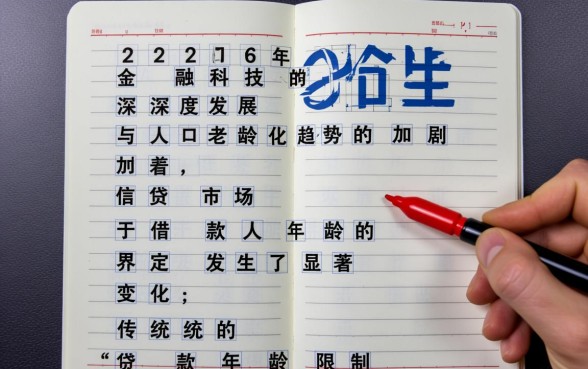 22216年
金融科技的
深深度发展
与人口老龄化趋势的加剧
加着，
信贷市场
于借款人年龄的
界定发生了显著
变化；
传统统的
“贷款年龄限制